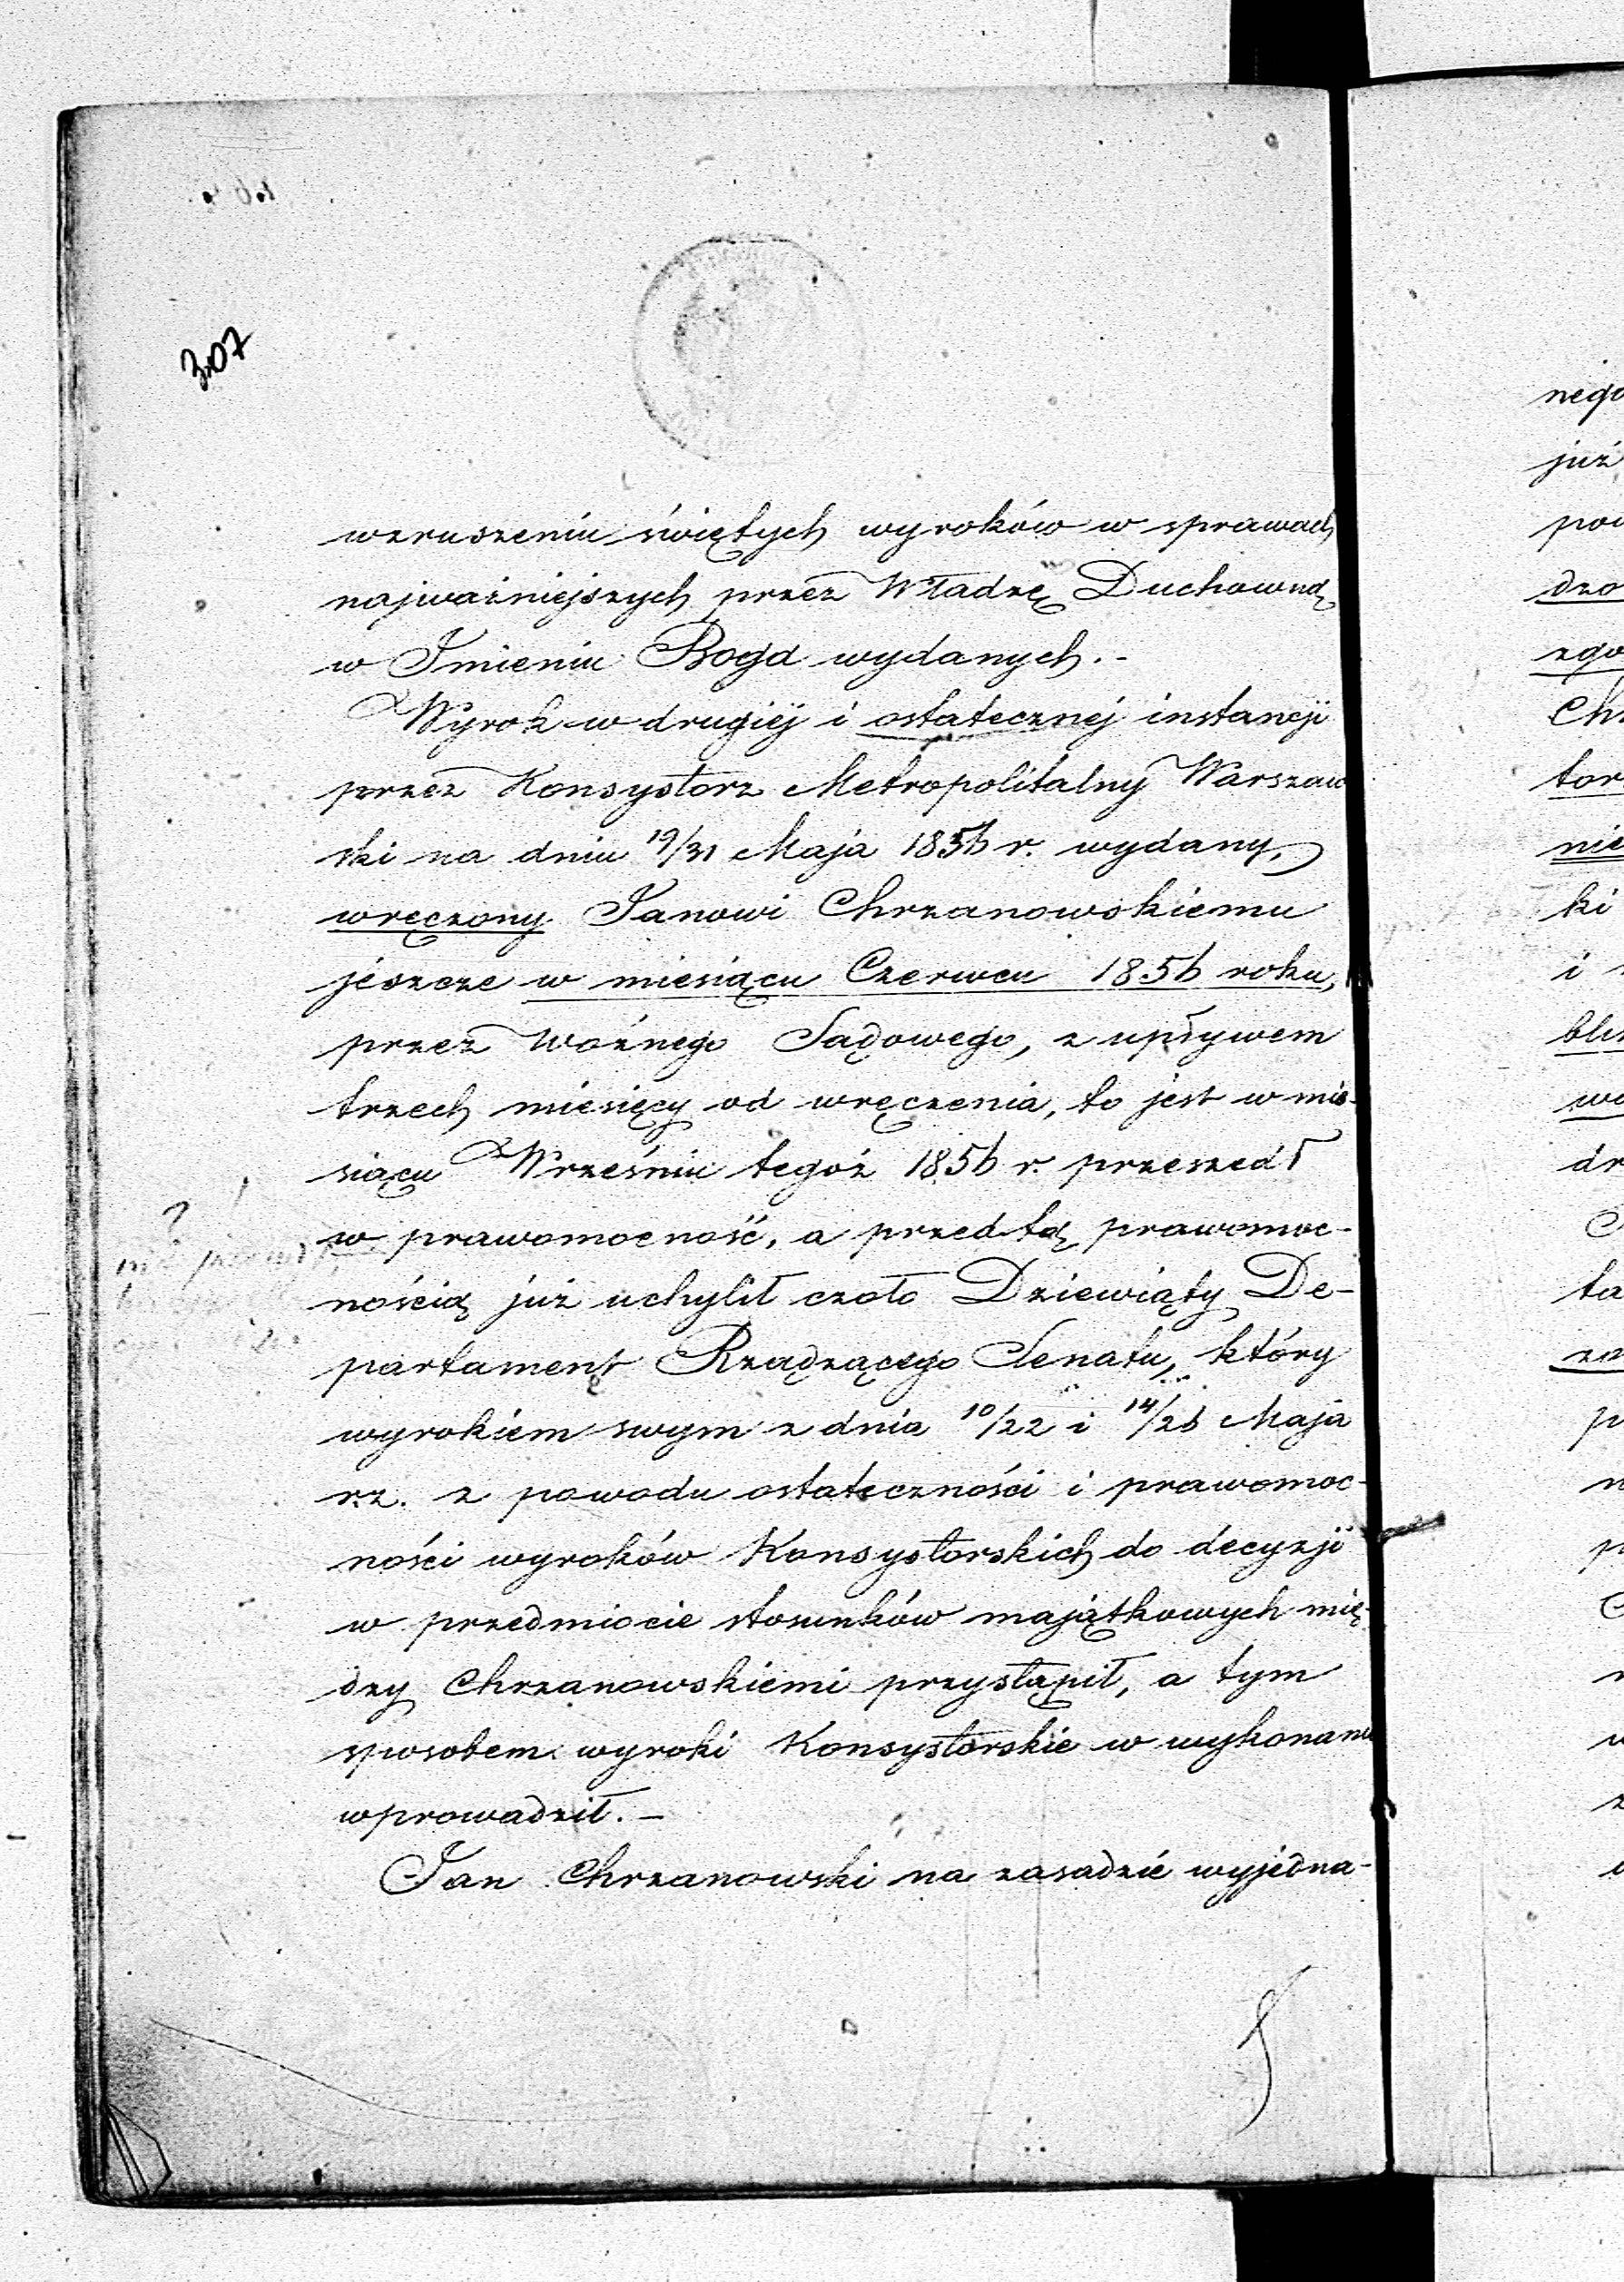 307
wzruszeniu świętych wyroków w sprawach
najważniejszych przez Władzę Duchowną
w Imieniu Boga wydanych. -
Wyrok w drugiéj i ostatecznéj instancji
przez Konsystorz Metropolitalny Warszaw
ski na dniu 19/31 Maja 1856 r. wydany,
wręczony Janowi Chrzanowskiemu
jeszcze w miesiącu Czerwcu 1856 roku,
przez Woźnego Sądowego, z upływem
trzech miesięcy od wręczenia, to jest w mie-
siącu Wrześniu tegoż 1856 r. przeszedł
w prawomocność, a przed tą prawomoc-
nością już uchylił czoło Dziewiąty De-
partament Rządzącego Senatu, który
wyrokiem swym z dnia 10/22 i 14/26 Maja
r.z. z powodu ostateczności i prawomoc-
ności wyroków Konsystorskich do decyzji
w przedmiocie stosunków majątkowych mię-
dzy Chrzanowskiemi przystąpił, a tym
sposobem wyroki Konsystorskie w wykonanie
wprowadził. -
Jan Chrzanowski na zasadzie wyjedna-
?
nego
już
ki
i